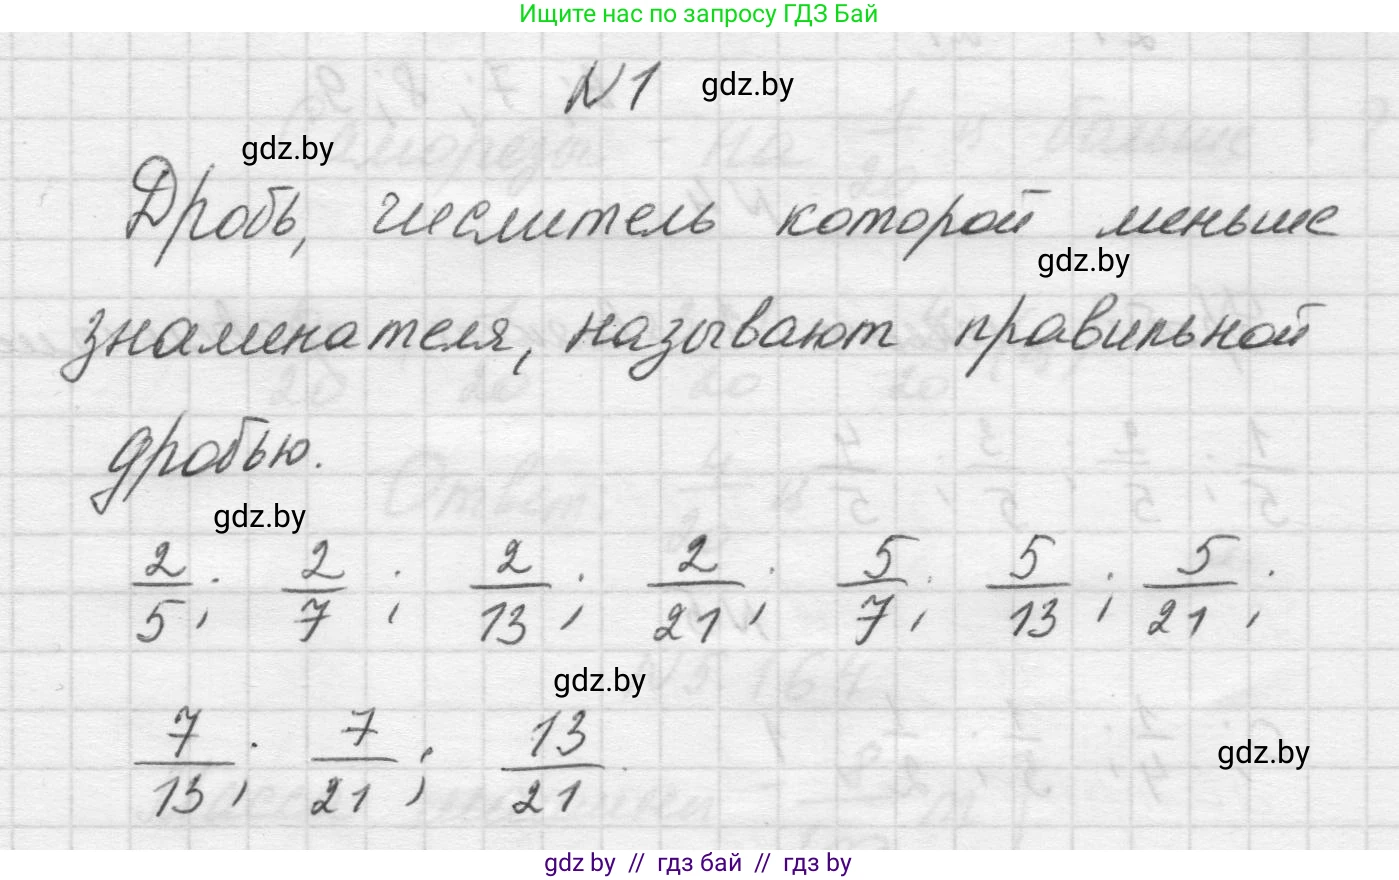 Ищите нас по запросу ГДЗ Бай
N1 gdz.by
gdz.by
Дробь, числитель которой меньше
gdz.by
знаменателя, называют правильной
дробью.
gdz.by
2/5; 2/7; 2/13; 2/21; 5/7; 5/13; 5/21;
gdz.by
7/13; 7/21; 13/21.
gdz.by
gdz by // гдз бай // гдз by